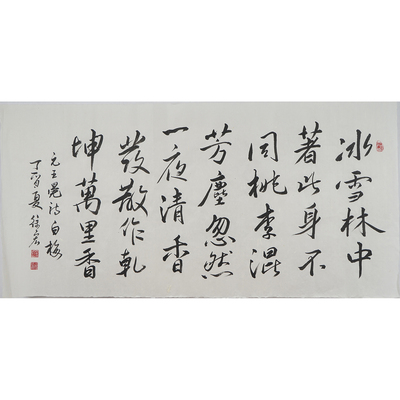 冰雪林中
著此身不
同桃李混
芳塵忽然
一夜清香
發散作乾
坤萬里香
元王冕诗白梅
丁酉夏